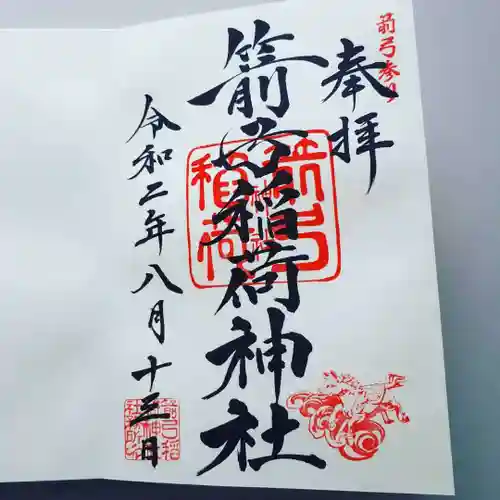 箭弓参り
奉拝
箭弓稲荷神社
令和二年八月十三日
箭弓
稲荷
神社